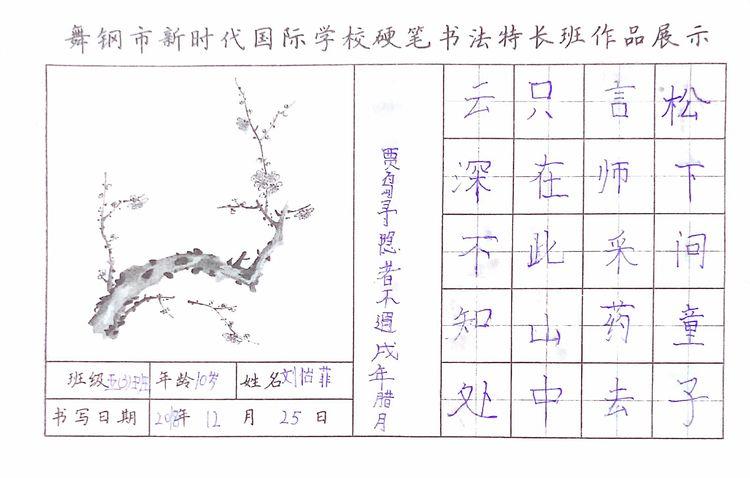 舞钢市新时代国际学校硬笔书法特长班作品展示
松下问童子
言师采药去
只在此山中
云深不知处
贾岛寻隐者不遇戊年腊月
班级 五(3)班 年龄 10岁 姓名 刘怡菲
书写日期 2018年 12月 25日